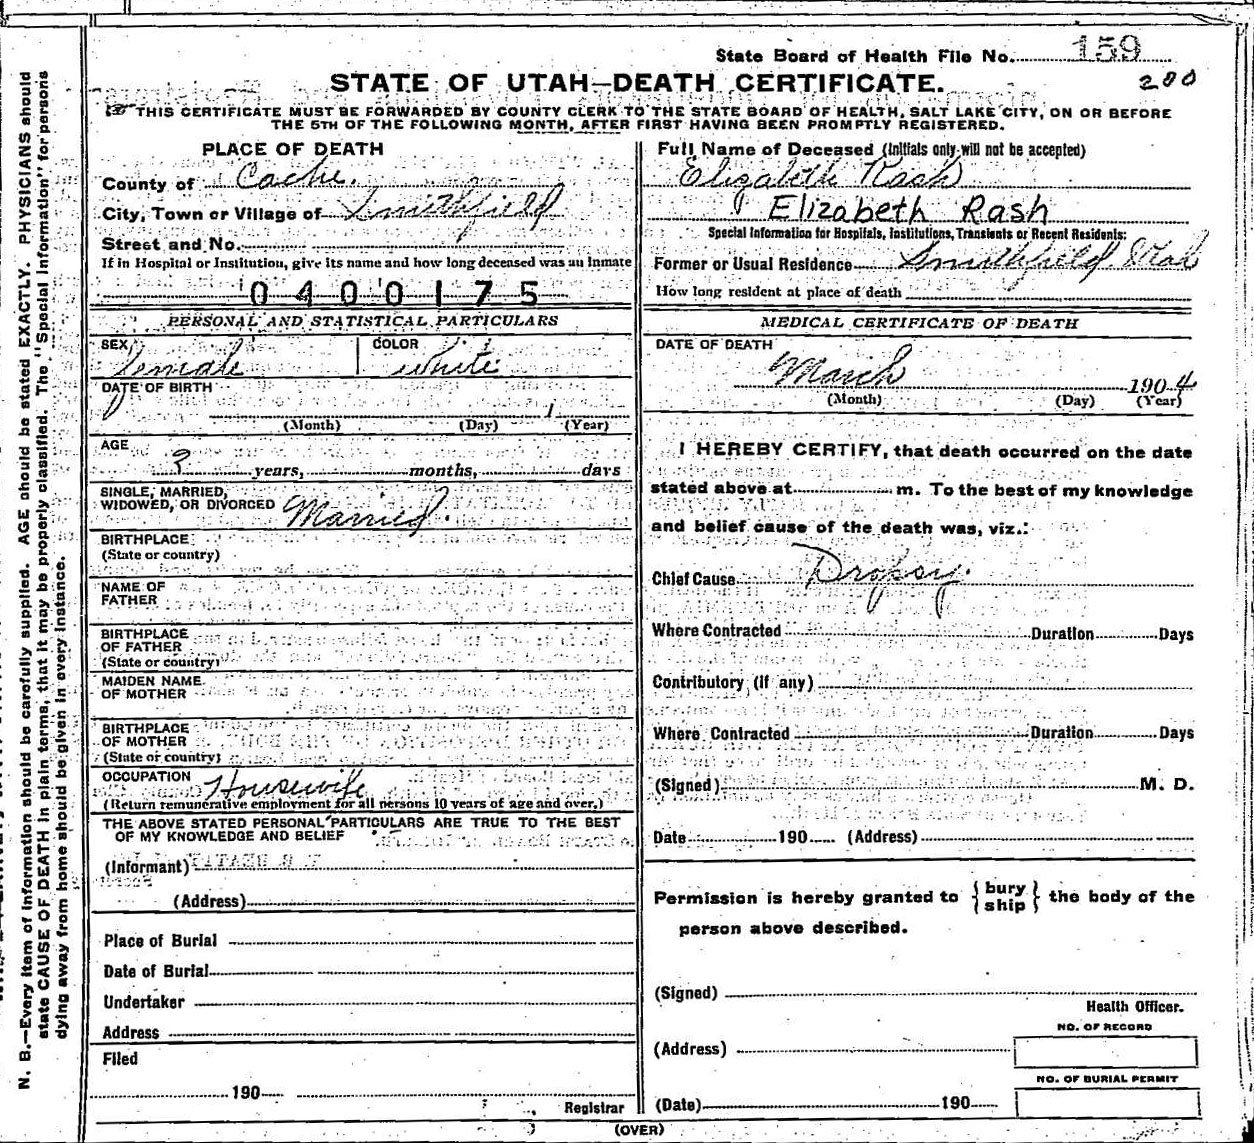 State Board of Health File No. 159
STATE OF UTAH—DEATH CERTIFICATE.
200
THIS CERTIFICATE MUST BE FORWARDED BY COUNTY CLERK TO THE STATE BOARD OF HEALTH, SALT LAKE CITY, ON OR BEFORE
THE 5TH OF THE FOLLOWING MONTH, AFTER FIRST HAVING BEEN PROMPTLY REGISTERED.
PLACE OF DEATH
County of Cache.
City, Town or Village of Smithfield
Street and No.
If in Hospital or Institution, give its name and how long deceased was an Inmate
0400175
PERSONAL AND STATISTICAL PARTICULARS
SEX COLOR
Female White
DATE OF BIRTH
1
(Month) (Day) (Year)
AGE
? years, months, days
SINGLE, MARRIED,
WIDOWED, OR DIVORCED Married.
BIRTHPLACE
(State or country)
NAME OF
FATHER
BIRTHPLACE
OF FATHER
(State or country)
MAIDEN NAME
OF MOTHER
BIRTHPLACE
OF MOTHER
(State or country)
OCCUPATION Housewife
(Return remunerative employment for all persons 10 years of age and over.)
THE ABOVE STATED PERSONAL PARTICULARS ARE TRUE TO THE BEST
OF MY KNOWLEDGE AND BELIEF
(Informant)
(Address)
Place of Burial
Date of Burial
Undertaker
Address
Filed
190
Registrar
Full Name of Deceased (Initials only will not be accepted)
Elizabeth Rash
Elizabeth Rash
Special Information for Hospitals, Institutions, Transients or Recent Residents:
Former or Usual Residence Smithfield Utah
How long resident at place of death
MEDICAL CERTIFICATE OF DEATH
DATE OF DEATH
March 1904
(Month) (Day) (Year)
I HEREBY CERTIFY, that death occurred on the date
stated above at m. To the best of my knowledge
and belief cause of the death was, viz.:
Chief Cause Dropsy.
Where Contracted Duration Days
Contributory (if any)
Where Contracted Duration Days
(Signed) M. D.
Date 190 (Address)
Permission is hereby granted to { bury
ship } the body of the
person above described.
(Signed)
Health Officer.
NO. OF RECORD
(Address)
NO. OF BURIAL PERMIT
(Date) 190
(OVER)
N. B.—Every item of information should be carefully supplied. AGE should be stated EXACTLY. PHYSICIANS should
state CAUSE OF DEATH in plain terms, that it may be properly classified. The "Special Information" for persons
dying away from home should be given in every instance.